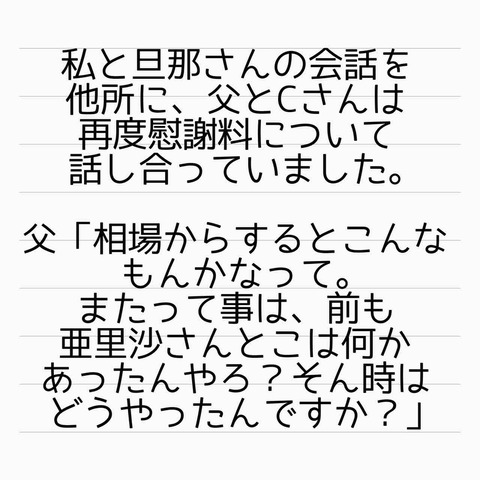 私と旦那さんの会話を
他所に、父とCさんは
再度慰謝料について
話し合っていました。
父「相場からするとこんな
もんかなって。
またって事は、前も
亜里沙さんとこは何か
あったんやろ？そん時は
どうやったんですか？」